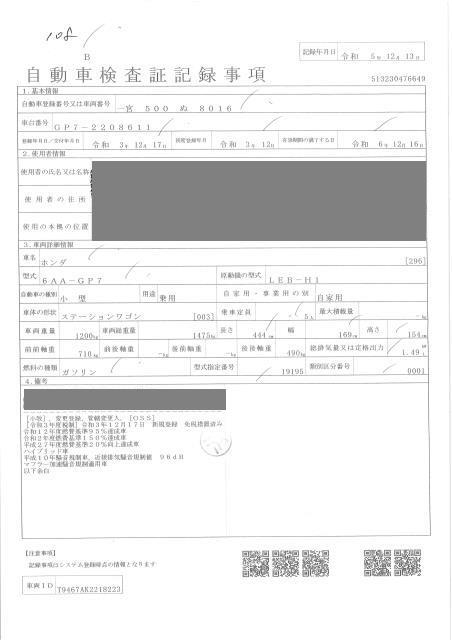 108
B
記録年月日 令和 5年 12月 13日
自動車検査証記録事項
513230476649
1.基本情報
自動車登録番号又は車両番号 一宮 500 ぬ 8016
車台番号 GP7-2208611
登録年月日/交付年月日 令和 3年 12月 17日 初度登録年月 令和 3年 12月 有効期間の満了する日 令和 6年 12月 16日
2.使用者情報
使用者の氏名又は名称
使用者の住所
使用の本拠の位置
3.車両詳細情報
車名 ホンダ [296]
型式 6AA-GP7 原動機の型式 LEB-H1
自動車の種別 小型 用途 乗用 自家用・事業用の別 自家用
車体の形状 ステーションワゴン [003] 乗車定員 5人 最大積載量 -kg
車両重量 1200kg 車両総重量 1475kg 長さ 444cm 幅 169cm 高さ 154cm
前前軸重 710kg 前後軸重 -kg 後前軸重 -kg 後後軸重 490kg 総排気量又は定格出力 1.49L
燃料の種類 ガソリン 型式指定番号 19195 類別区分番号 0001
4.備考
[小牧],変更登録,管轄変更入,[OSS]
[令和3年度税制]令和3年12月17日 新規登録 免税措置済み
令和12年度燃費基準95%達成車
令和2年度燃費基準150%達成車
平成27年度燃費基準20%向上達成車
ハイブリッド車
平成10年騒音規制車、近接排気騒音規制値 96dB
マフラー加速騒音規制適用車
以下余白
【注意事項】
記録事項はシステム登録時点の情報となります
車両ID T9467AK2218223